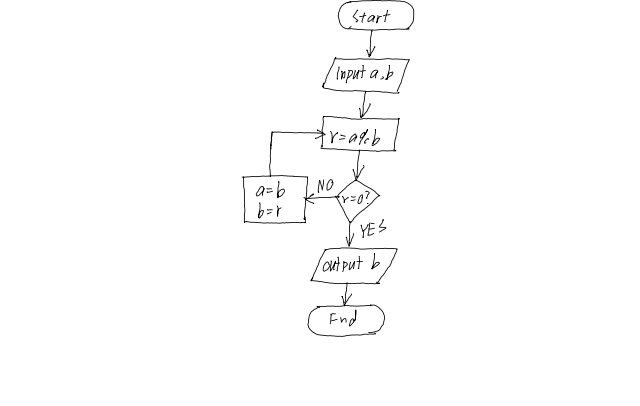 Start
Input a,b
r=a%b
a=b
b=r
NO
r=0?
YES
output b
End